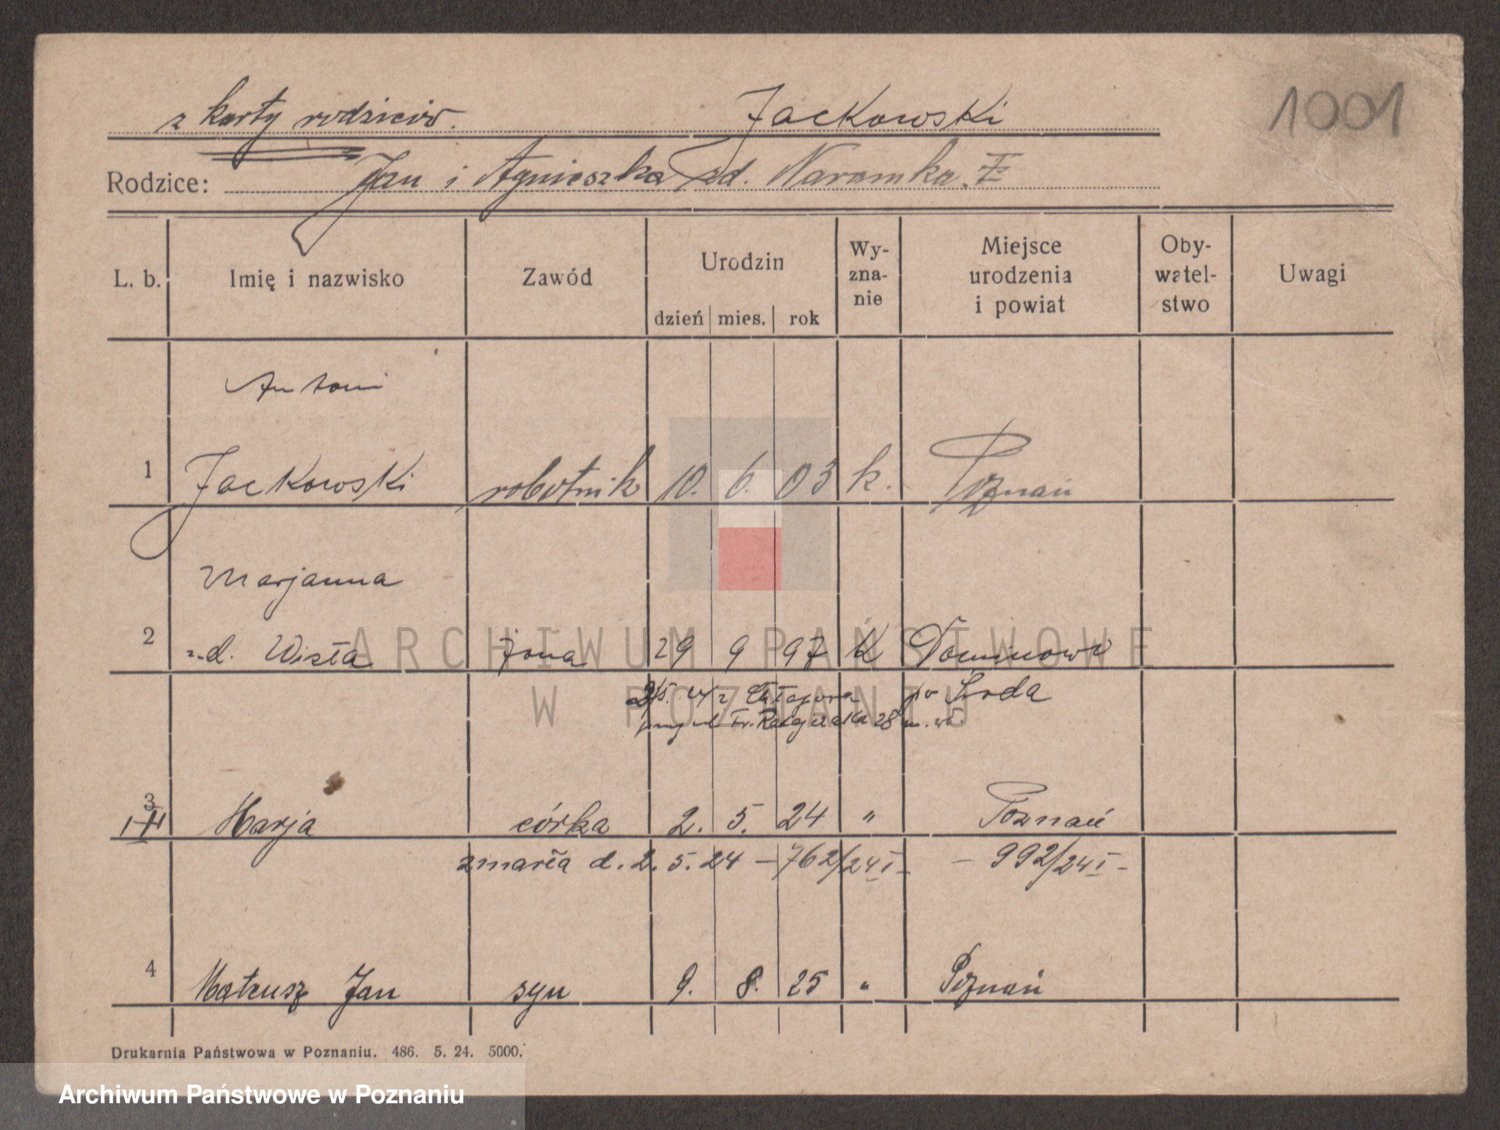 1001
z karty rodziców. Jackowski
Rodzice: Jan i Agnieszka zd. Naramka.
L. b. Imię i nazwisko Zawód Urodzin Wy-zna-nie Miejsce urodzenia i powiat Oby-watel-stwo Uwagi
dzień mies. rok
Antoni
1 Jackowski robotnik 10. 6. 03 k. Poznań
Marjanna
2 z d. Wisła żona 29 9 97 k Dominowo
24 z po Środa
28 m.
3 Marja córka 2. 5. 24 " Poznań
zmarła d. 2. 5. 24 – 762/24 I – – 992/24 I –
4 Mateusz Jan syn 9. 8. 25 " Poznań
Drukarnia Państwowa w Poznaniu. 486. 5. 24. 5000.
ARCHIWUM PAŃSTWOWE
W POZNANIU
Archiwum Państwowe w Poznaniu